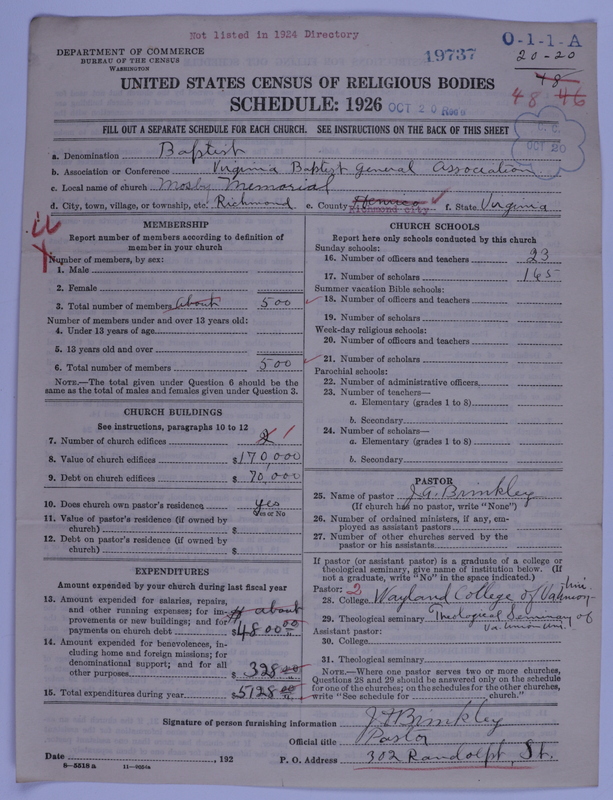 Not listed in 1924 Directory
DEPARTMENT OF COMMERCE
BUREAU OF THE CENSUS
WASHINGTON
19737
O-1-1-A
20-20
48
48 46
UNITED STATES CENSUS OF RELIGIOUS BODIES
SCHEDULE: 1926
OCT 20
OCT 20
FILL OUT A SEPARATE SCHEDULE FOR EACH CHURCH. SEE INSTRUCTIONS ON THE BACK OF THIS SHEET
a. Denomination Baptist
b. Association or Conference Virginia Baptist General Association
c. Local name of church Mosby Memorial
d. City, town, village, or township, etc. Richmond e. County Henrico Richmond city f. State Virginia
MEMBERSHIP
Report number of members according to definition of
member in your church
Number of members, by sex:
1. Male
2. Female
3. Total number of members About 500
Number of members under and over 13 years old:
4. Under 13 years of age
5. 13 years old and over
6. Total number of members 500
NOTE.—The total given under Question 6 should be the
same as the total of males and females given under Question 3.
CHURCH BUILDINGS
See instructions, paragraphs 10 to 12
7. Number of church edifices 2 1
8. Value of church edifices $170,000
9. Debt on church edifices $70,000
10. Does church own pastor's residence yes
Yes or No
11. Value of pastor's residence (if owned by
church) $
12. Debt on pastor's residence (if owned by
church) $
EXPENDITURES
Amount expended by your church during last fiscal year
13. Amount expended for salaries, repairs,
and other running expenses; for im-
provements or new buildings; and for
payments on church debt about $4800 00
14. Amount expended for benevolences, in-
cluding home and foreign missions; for
denominational support; and for all
other purposes $328 00
15. Total expenditures during year $5128 00
CHURCH SCHOOLS
Report here only schools conducted by this church
Sunday schools:
16. Number of officers and teachers 23
17. Number of scholars 165
Summer vacation Bible schools:
18. Number of officers and teachers
19. Number of scholars
Week-day religious schools:
20. Number of officers and teachers
21. Number of scholars
Parochial schools:
22. Number of administrative officers
23. Number of teachers—
a. Elementary (grades 1 to 8)
b. Secondary
24. Number of scholars—
a. Elementary (grades 1 to 8)
b. Secondary
PASTOR
25. Name of pastor J. A. Brinkley
(If church has no pastor, write "None")
26. Number of ordained ministers, if any, em-
ployed as assistant pastors
27. Number of other churches served by the
pastor or his assistants
If pastor (or assistant pastor) is a graduate of a college or
theological seminary, give name of institution below. (If
not a graduate, write "No" in the space indicated.)
Pastor: 2
28. College Wayland College of Va Union Uni.
29. Theological seminary Theological Seminary of
Va. Union Uni.
Assistant pastor:
30. College
31. Theological seminary
NOTE.—Where one pastor serves two or more churches,
Questions 28 and 29 should be answered only on the schedule
for one of the churches; on the schedules for the other churches,
write "See schedule for church."
Signature of person furnishing information J. A. Brinkley
Official title Pastor
Date , 192 P. O. Address 302 Randolph, St.
8—5518 a 11—9554a